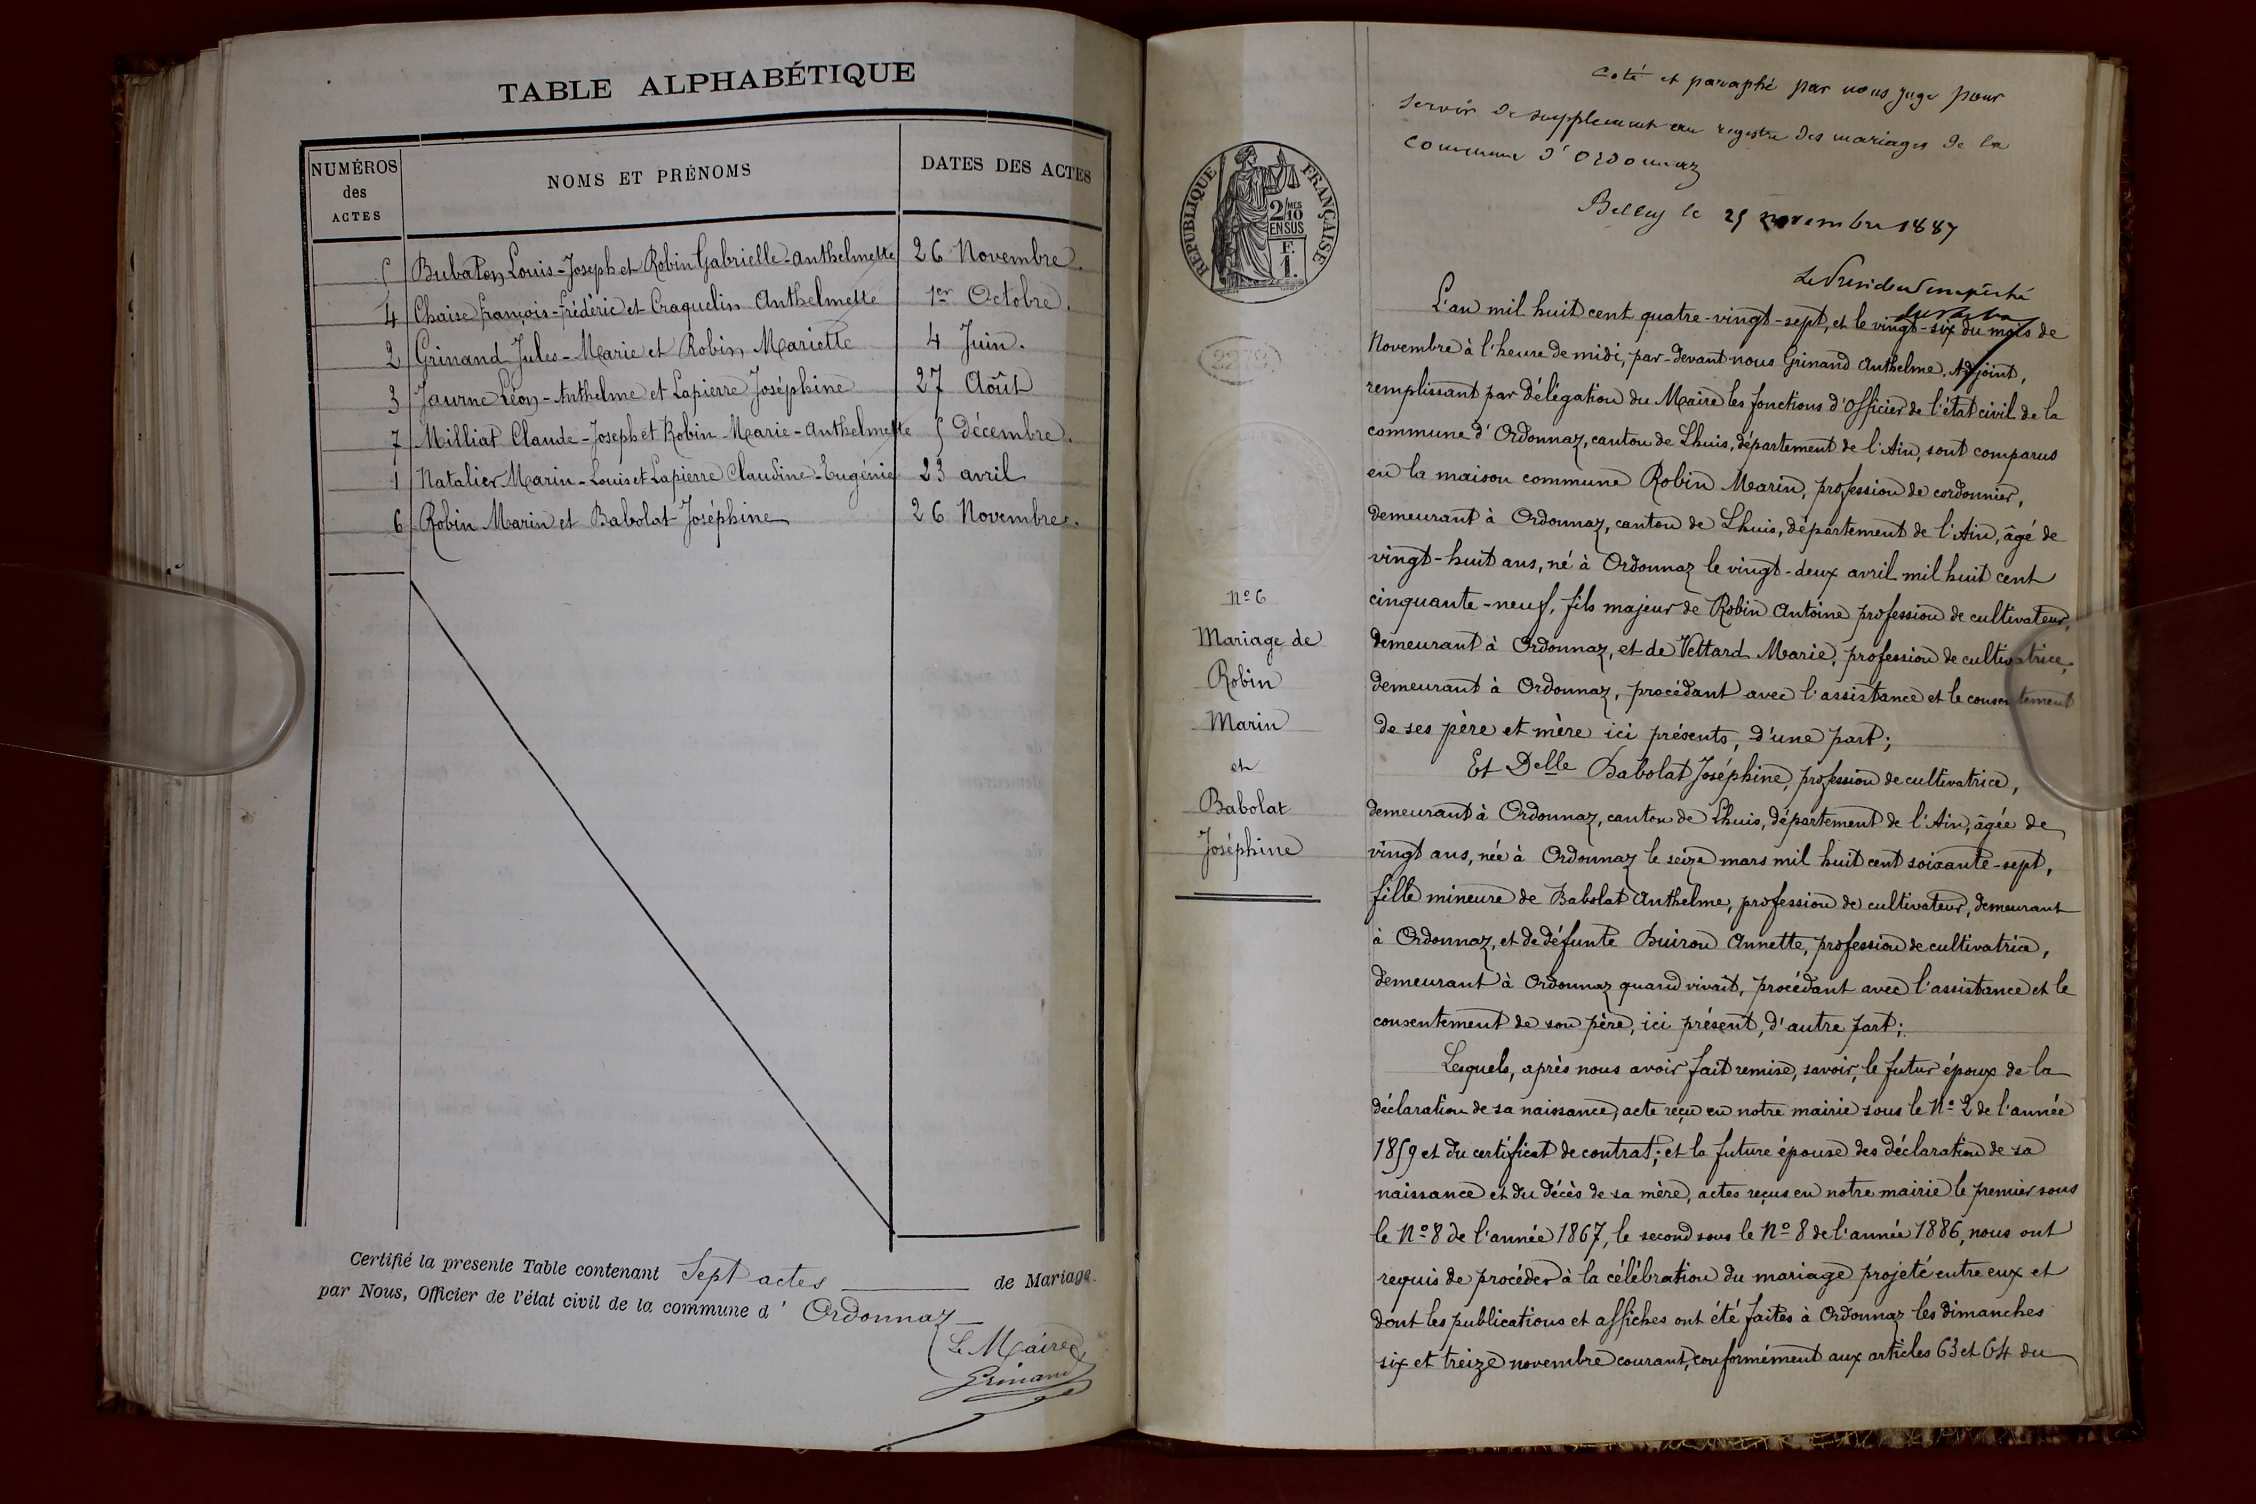 TABLE ALPHABÉTIQUE
NUMÉROS des ACTES
NOMS ET PRÉNOMS
DATES DES ACTES
5 Louis-Joseph et Robin Gabrielle-Anthelmette 26 Novembre.
4 Chaise François-frédéric et Craquelin Anthelmette 1er Octobre.
2 Grinand Jules-Marie et Robin Mariette 4 Juin.
3 Léon-Anthelme et Lapierre Joséphine 27 Août
7 Milliat Claude-Joseph et Robin Marie-Anthelmette 5 Décembre.
1 Natalier Marin-Louis et Lapierre Claudine-Eugénie 23 avril
6 Robin Marin et Babolat Joséphine 26 Novembre.
Certifié la presente Table contenant Sept actes de Mariage
par Nous, Officier de l'état civil de la commune d' Ordonnaz
Le Maire
Grinand
Coté et paraphé par nous juge pour
servir de supplement au registre des mariages de la
commune d'Ordonnaz
Belley le 25 novembre 1887
Le President empêché
RÉPUBLIQUE FRANÇAISE
2/10MES
EN SUS
F.
1.
L'an mil huit cent quatre-vingt-sept, et le vingt-six du mois de
Novembre à l'heure de midi, par-devant nous Grinand Anthelme, Adjoint,
remplissant par délégation du Maire les fonctions d'Officier de l'état civil de la
commune d'Ordonnaz, canton de Lhuis, département de l'Ain, sont comparus
en la maison commune Robin Marin, profession de cordonnier,
demeurant à Ordonnaz, canton de Lhuis, département de l'Ain, âgé de
vingt-huit ans, né à Ordonnaz le vingt-deux avril mil huit cent
cinquante-neuf, fils majeur de Robin Antoine profession de cultivateur,
demeurant à Ordonnaz, et de Vettard Marie, profession de cultivatrice,
demeurant à Ordonnaz, procédant avec l'assistance et le consentement
de ses père et mère ici présents, d'une part;
Nº 6
Mariage de
Robin
Marin
et
Babolat
Joséphine
Et Delle Babolat Joséphine, profession de cultivatrice,
demeurant à Ordonnaz, canton de Lhuis, département de l'Ain, âgée de
vingt ans, née à Ordonnaz le seize mars mil huit cent soixante-sept,
fille mineure de Babolat Anthelme, profession de cultivateur, demeurant
à Ordonnaz, et de défunte Buiron Annette, profession de cultivatrice,
demeurant à Ordonnaz quand vivait, procédant avec l'assistance et le
consentement de son père, ici présent, d'autre part;
Lesquels, après nous avoir fait remise, savoir, le futur époux de la
déclaration de sa naissance, acte reçu en notre mairie sous le Nº 2 de l'année
1859 et du certificat de contrat; et la future épouse des déclaration de sa
naissance et du décès de sa mère, actes reçus en notre mairie le premier sous
le Nº 8 de l'année 1867, le second sous le Nº 8 de l'année 1886, nous ont
requis de procéder à la célébration du mariage projeté entre eux et
dont les publications et affiches ont été faites à Ordonnaz les dimanches
six et treize novembre courant, conformément aux articles 63 et 64 du